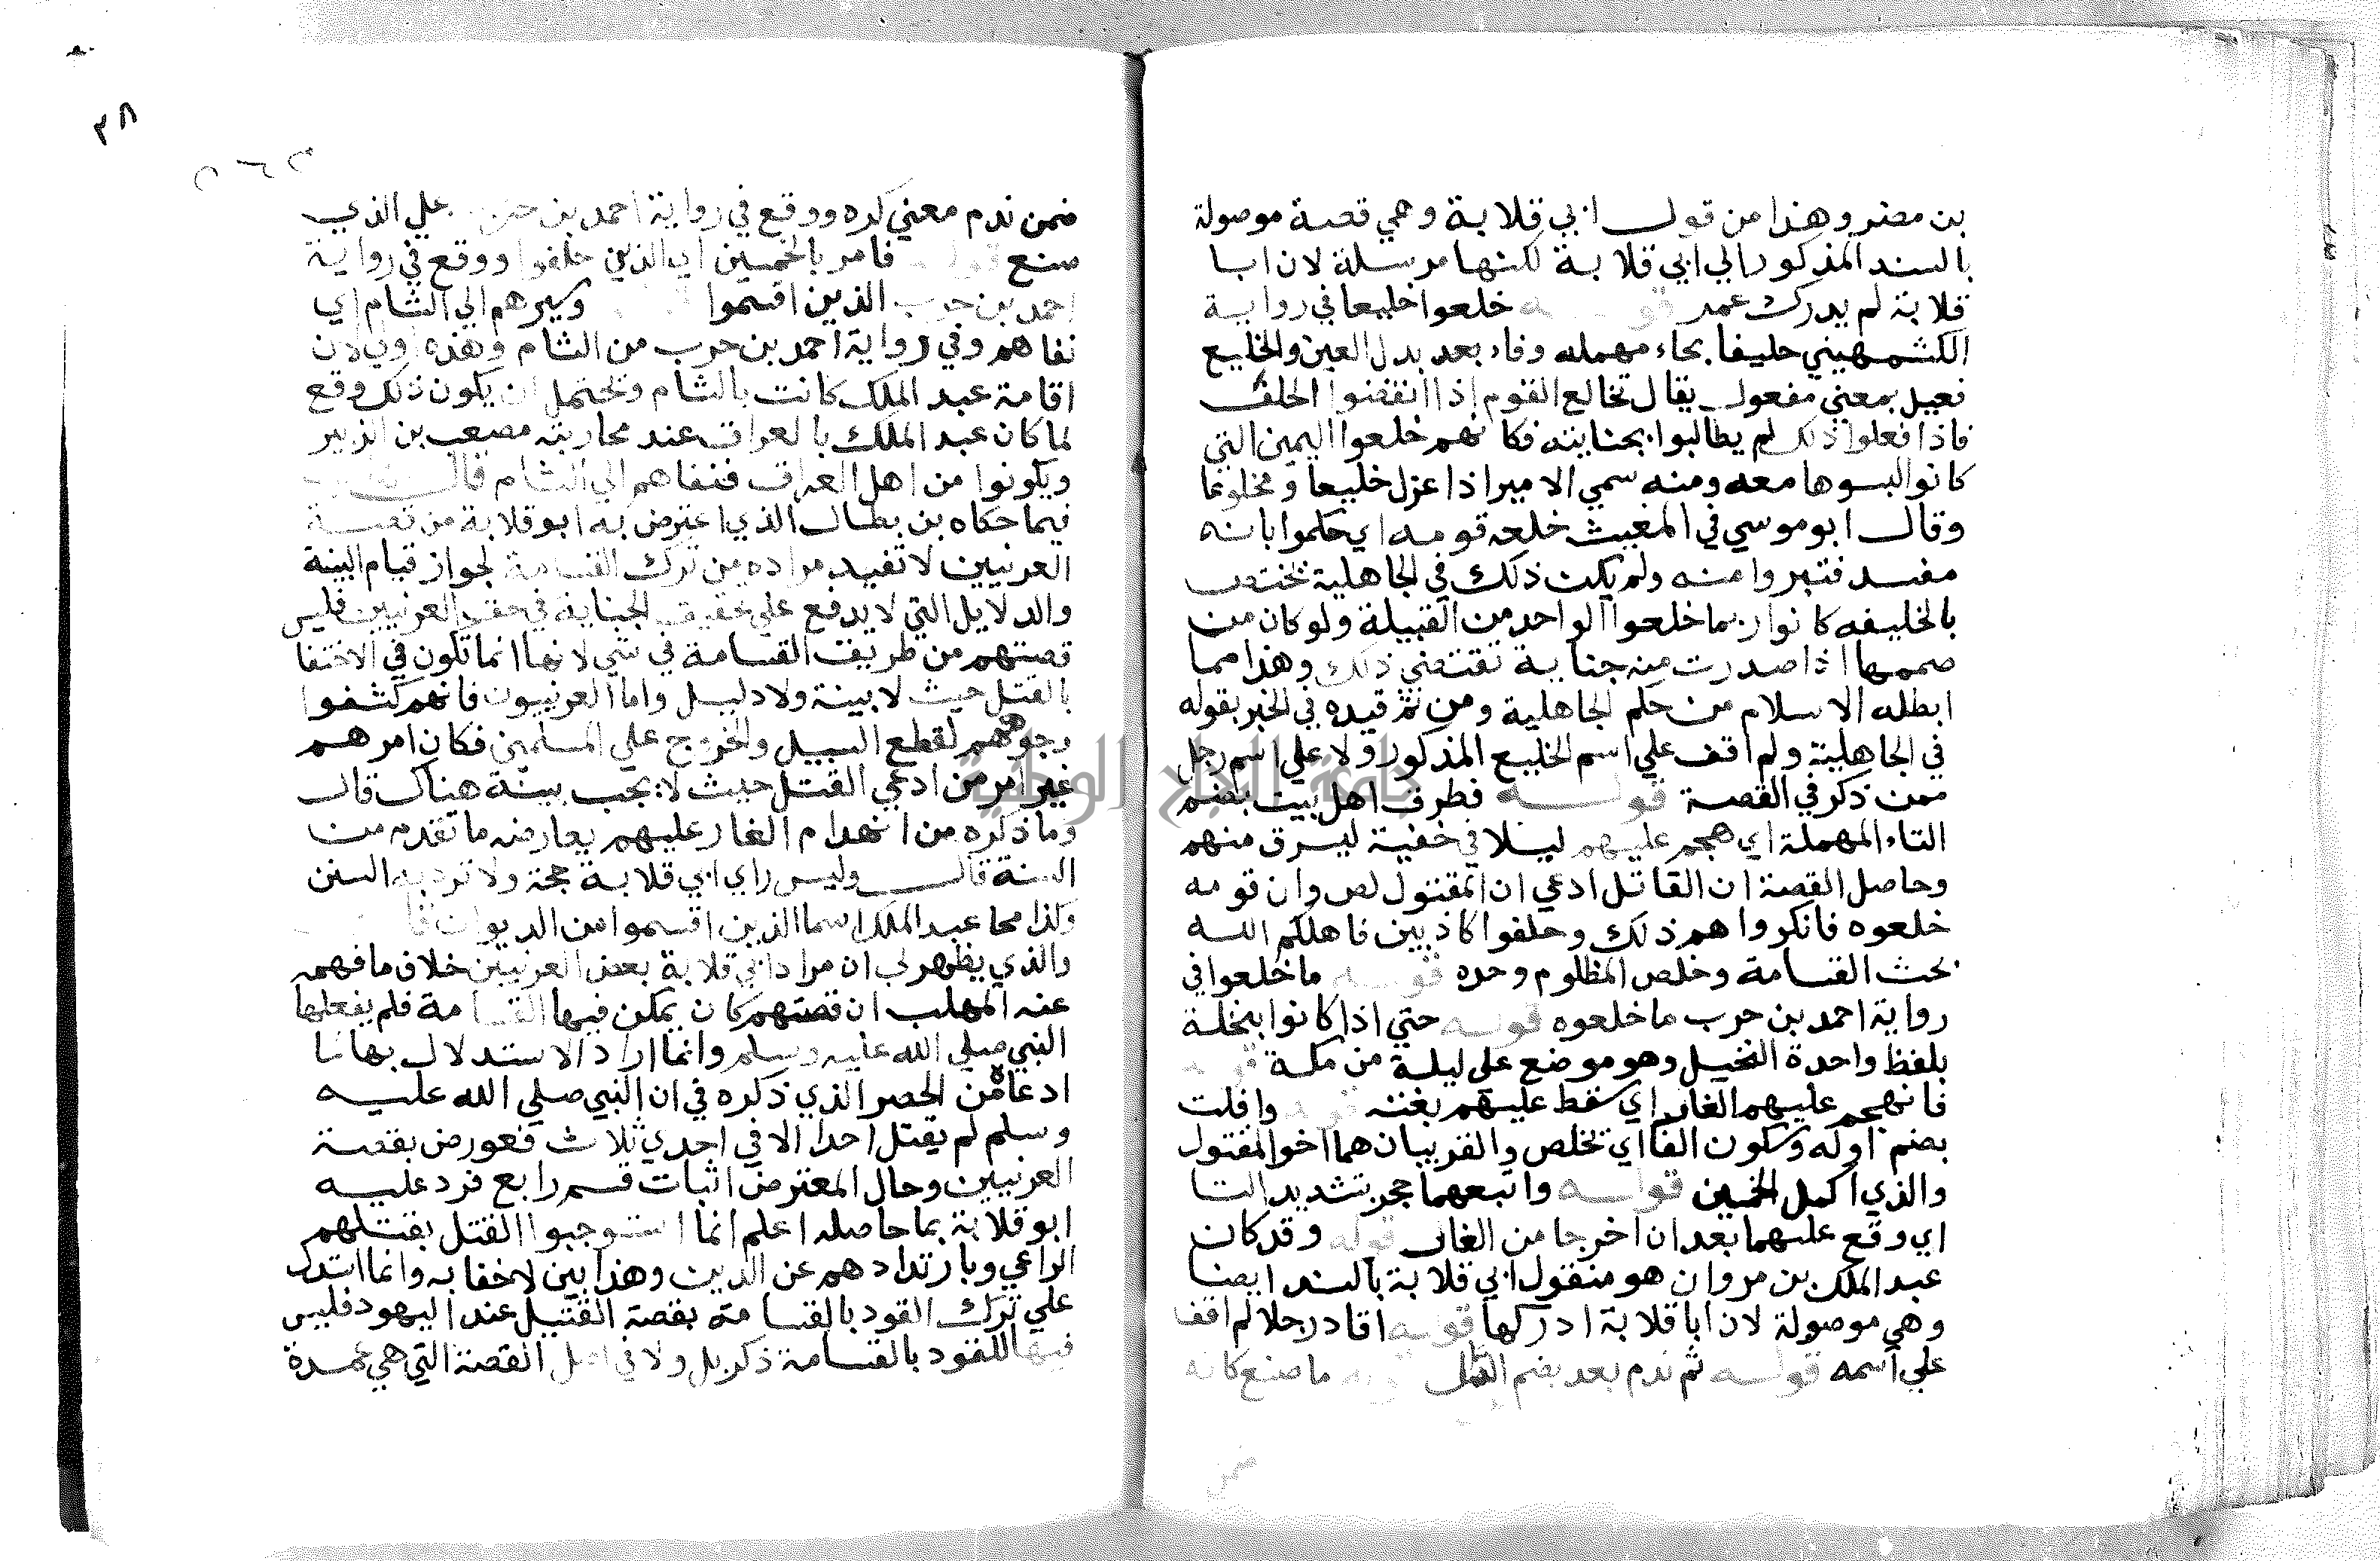 بن مضر وهذا من قول ابي قلابة وهي قصة موصولة
بالسند المذكور الي ابي قلابة لكنها مرسلة لان ابا
قلابة لم يدرك عمر قوله خلعوا خليعا في رواية
الكشمهيني حليفا بحاء مهمله وفاء بعد بدل العين والخليع
فعيل بمعني مفعول يقال تخالع القوم اذا انقضوا الحلف
فاذا فعلوا ذلك لم يطالبوا بجنايته فكانهم خلعوا اليمين التي
كانوا لبسوها معه ومنه سمي الامير اذا عزل خليعا ومخلوعا
وقال ابو موسي في المغيث خلعه قومه اي حكموا بانه
مفسد فتبروا منه ولم يكن ذلك في الجاهلية تختص
بالخليفه كانوا ربما خلعوا الواحد من القبيلة ولو كان من
صميمها اذا صدرت منه جناية تقتضي ذلك وهذا مما
ابطله الاسلام من حكم الجاهلية ومن ثم قيده في الخبر بقوله
في الجاهلية ولم اقف علي اسم الخليع المذكور ولا علي اسم رجل
ممن ذكر في القصة قوله فطرق اهل بيت بضم
التاء المهملة اي هجم عليهم ليلا في خفية ليسرق منهم
وحاصل القصة ان القاتل ادعي ان المقتول لص وان قومه
خلعوه فانكروا هم ذلك وحلفوا كاذبين فاهلكهم الله
بحنث القسامة وخلص المظلوم وحده قوله ما خلعوا في
رواية احمد بن حرب ما خلعوه قوله حتي اذا كانوا بنخلة
بلفظ واحدة النخيل وهو موضع علي ليلة من مكة قوله
فانهجم عليهم الغار اي سقط عليهم بغتة قوله وافلت
بضم اوله وسكون الفا اي تخلص والقرينان هما اخو المقتول
والذي اكمل الخمسين قوله واتبعهما حجر بتشديد التا
اي وقع عليهما بعد ان اخرجا من الغار قوله وقد كان
عبد الملك بن مروان هو منقول ابي قلابة بالسند ايضا
وهي موصولة لان ابا قلابة ادركها قوله اقاد رجلا لم اقف
علي اسمه قوله ثم ندم بعد بضم الدال قوله ما صنع كانه
ضمن
٣٨
ضمن ندم معني كره ووقع في رواية احمد بن حرب علي الذي
صنع قوله فامر بالخمسين اي الذين حلفوا ووقع في رواية
احمد بن حرب الذين اقسموا قوله وسيرهم الي الشام اي
نفاهم وفي رواية احمد بن حرب من الشام وهذه اولي لان
اقامة عبد الملك كانت بالشام ويحتمل ان يكون ذلك وقع
لما كان عبد الملك بالعراق عند محاربته مصعب بن الزبير
ويكونوا من اهل العراق فنفاهم الي الشام قال المهلب
فيما حكاه بن بطال الذي اعترض به ابو قلابة من قصة
العرنيين لا تفيد مراده من ترك القسامة لجواز قيام البينة
والدلايل التي لا يدفع علي تحقيق الجناية في حق العرنيين فليس
قصتهم من طريق القسامة في شي لانها انما تكون في الاختفا
بالقتل حيث لا بينة ولا دليل واما العرنيون فانهم كشفوا
وجوههم لقطع السبيل والخروج علي المسلمين فكان امرهم
غير امر من ادعي القتل حيث لا يجب بينة هناك قال
وما ذكره من انهدام الغار عليهم يعارضه ما تقدم من
السنة قال وليس راي ابي قلابة حجة ولا ترد به السنن
وكذا محا عبد الملك اسما الذين اقسموا من الديوان قلت
والذي يظهر لي ان مراد ابي قلابة بعض العرنيين خلاف ما فهمه
عنه المهلب ان قصتهم كان يمكن فيها القسامة فلم يفعلها
النبي صلي الله عليه وسلم وانما اراد الاستدلال بها لما
ادعاه من الحصر الذي ذكره في ان النبي صلي الله عليه
وسلم لم يقتل احدا الا في احدي ثلاث فعورض بقصة
العرنيين وحال المعترض اثبات قسم رابع فرد عليه
ابو قلابة بما حاصله اعلم انما استوجبوا القتل بقتلهم
الراعي وبارتدادهم عن الدين وهذا بين لا خفا به وانما استدل
علي ترك القود بالقسامة بقصة القتيل عند اليهود فليس
فيها للقود بالقسامة ذكر بل ولا في اصل القصة التي هي عمدة